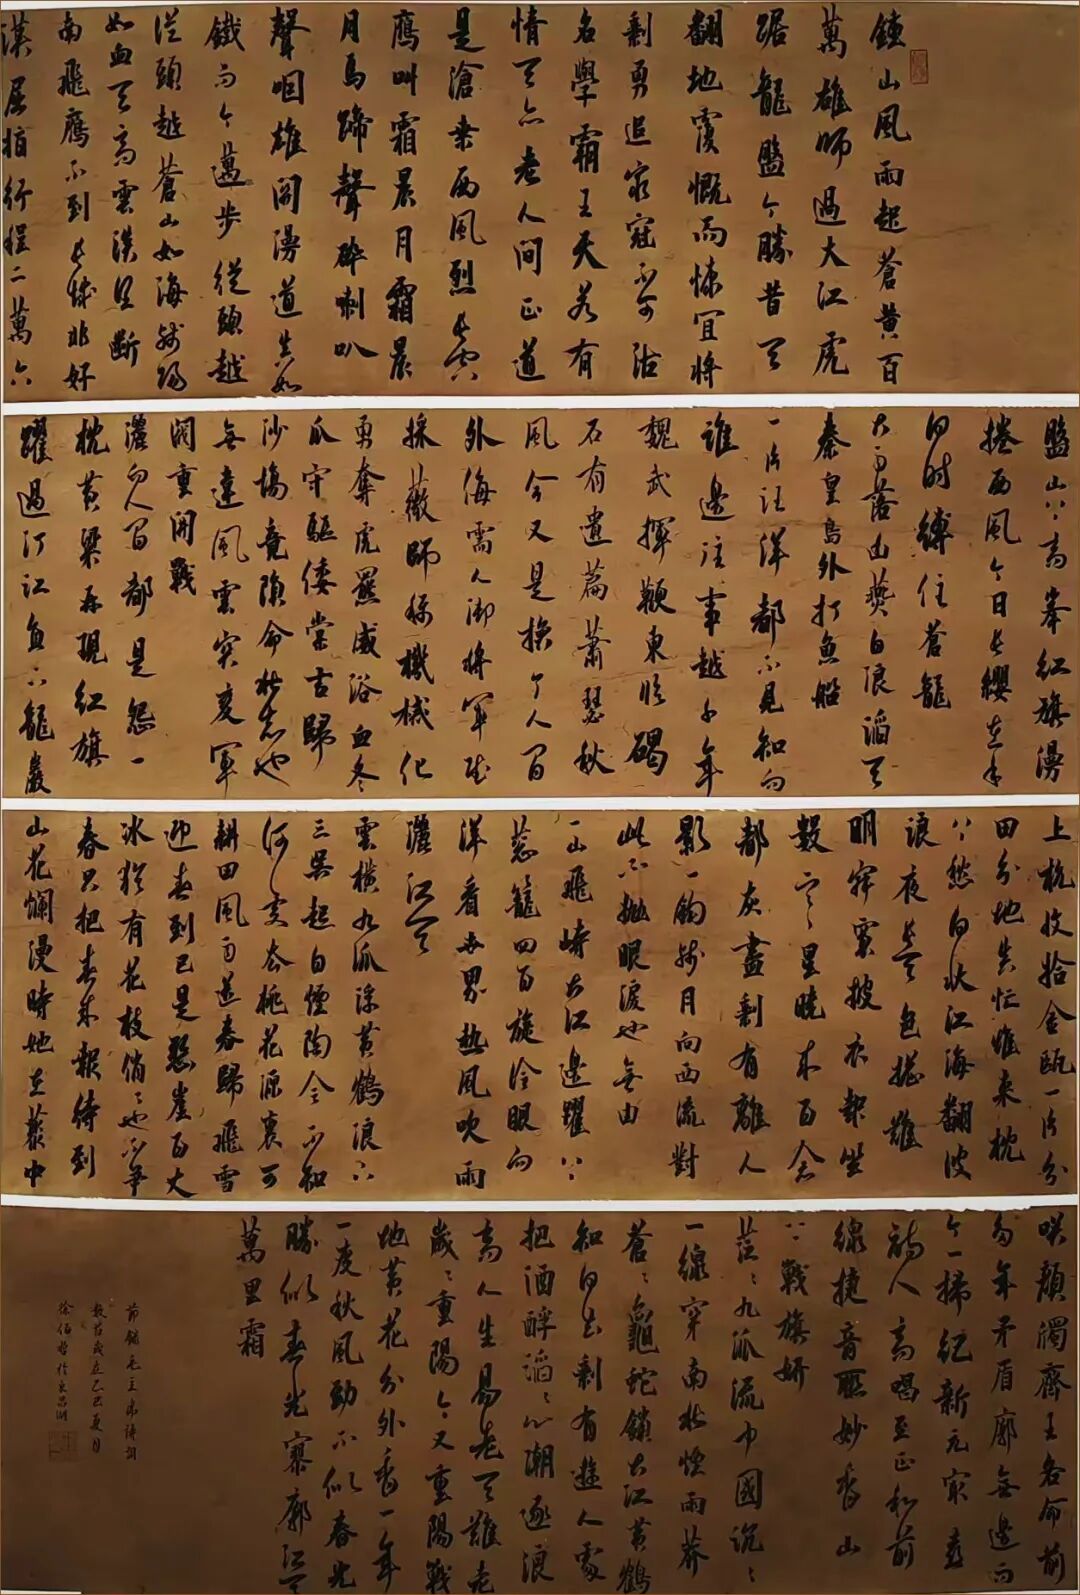 鍾山風雨起蒼黄百
萬雄師過大江虎
踞龍盤今勝昔天
翻地覆慨而慷宜將
剩勇追窮寇不可沽
名學霸王天若有
情天亦老人間正道
是滄桑西風烈長空
鴈叫霜晨月霜晨
月馬蹄聲碎喇叭
聲咽雄關漫道真如
鐵而今邁步從頭越
從頭越蒼山如海殘陽
如血天高雲淡望斷
南飛鴈不到長城非好
漢屈指行程二萬六
盤山上高峯紅旗漫
捲西風今日長纓在手
何時縛住蒼龍
大雨落幽燕白浪滔天
秦皇島外打魚船
一片汪洋都不見知向
誰邊往事越千年
魏武揮鞭東臨碣
石有遺篇蕭瑟秋
風今又是換了人間
外侮需人御將軍賦
採薇師稱機械化
勇奪虎羆威浴血冬
瓜守驅倭棠吉歸
沙場竟殞命壯志也
無違風雲突變軍
閥重開戰
灑向人間都是怨一
枕黄粱再現紅旗
躍過汀江直下龍巖
上杭收拾金甌一片分
田分地真忙誰來枕
上愁何狀江海翻波
浪夜長天色總難
明寂寞披衣起坐
數寒星曉來百念
都灰盡剩有離人
影一鈎殘月向西流對
此不拋眼淚也無由
一山飛峙大江邊躍上
葱籠四百旋冷眼向
洋看世界熱風吹雨
灑江天
雲横九派浮黄鶴浪下
三吴起白煙陶令不知
何處去桃花源裏可
耕田風雨送春歸飛雪
迎春到已是懸崖百丈
冰猶有花枝俏々也不爭
春只把春來報待到
山花爛漫時她在叢中
咲顔斶齊王各命前
多年矛盾廓無邊而
今一掃紀新元最喜
詩人高唱至正和前
線捷音聯妙香山
上戰旗妍
茫々九派流中國沉々
一線穿南北煙雨莽
蒼々龜蛇鎖大江黄鶴
知何去剩有遊人處
把酒酹滔々心潮逐浪
高人生易老天難老
歲々重陽今又重陽戰
地黄花分外香一年
一度秋風勁不似春光
勝似春光寥廓江天
萬里霜
節録毛主席詩詞
數首歲在乙巳夏月
徐伯哲於東昌湖